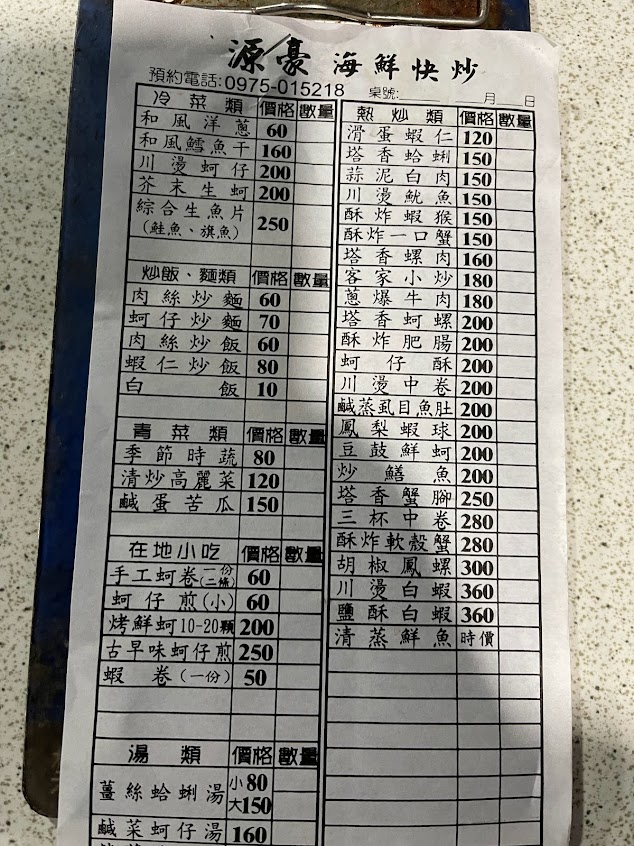 源豪 海鮮快炒
預約電話:0975-015218 桌號:____ __月__日
冷菜類 價格 數量
和風洋蔥 60
和風鱈魚干 160
川燙蚵仔 200
芥末生蚵 200
綜合生魚片 250
(鮭魚、旗魚)
炒飯、麵類 價格 數量
肉絲炒麵 60
蚵仔炒麵 70
肉絲炒飯 60
蝦仁炒飯 80
白飯 10
青菜類 價格 數量
季節時蔬 80
清炒高麗菜 120
鹹蛋苦瓜 150
在地小吃 價格 數量
手工蚵卷(一份二條) 60
蚵仔煎(小) 60
烤鮮蚵10-20顆 200
古早味蚵仔煎 250
蝦卷(一份) 50
湯類 價格 數量
薑絲蛤蜊湯 小80
大150
鹹菜蚵仔湯 160
熱炒類 價格 數量
滑蛋蝦仁 120
塔香蛤蜊 150
蒜泥白肉 150
川燙魷魚 150
酥炸蝦猴 150
酥炸一口蟹 150
塔香螺肉 160
客家小炒 180
蔥爆牛肉 180
塔香蚵螺 200
酥炸肥腸 200
蚵仔酥 200
川燙中卷 200
鹹蒸虱目魚肚 200
鳳梨蝦球 200
豆鼓鮮蚵 200
炒鱔魚 200
塔香蟹腳 250
三杯中卷 280
酥炸軟殼蟹 280
胡椒鳳螺 300
川燙白蝦 360
鹽酥白蝦 360
清蒸鮮魚 時價